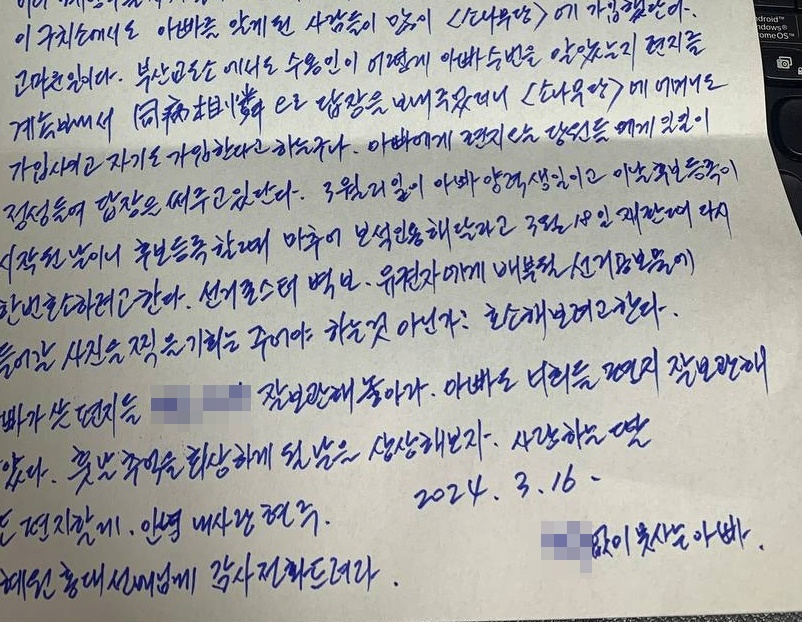 이 구치소에서도 아빠를 알게된 사람들이 많이 <소나무당>에 가입했단다.
고마운일이다. 부산교도소에서도 수용인이 어떻게 아빠 수번을 알았는지 편지를
계속보내서 同病相憐으로 답장을 보내주었더니 <소나무당>에 어머니도
가입시키고 자기도 가입한다고 하는구나. 아빠에게 편지쓰는 당원들에게 일일이
정성들여 답장을 써주고 있단다. 3월 21일이 아빠 양력생일이고 이날 후보등록이
시작된 날이니 후보등록할때 마추어 보석인용해달라고 3월 18일 재판때 다시
한번호소하려고한다. 선거포스터 벽보. 유권자에게 배부될 선거공보물에
들어갈 사진을 찍을기회는 주어야 하는것 아닌가? 호소해보려고한다.
빠가 쓴 편지를 잘보관해 놓아라. 아빠도 너희들 편지 잘보관해
았다. 훗날 추억을 회상하게 될 날을 상상해보자. 사랑하는 딸
또 편지할게. 안녕 내사랑 현주.
2024. 3. 16.
없이 못사는 아빠.
홍대선생님께 감사전화드려라.
android™
Windows®
ChromeOS™